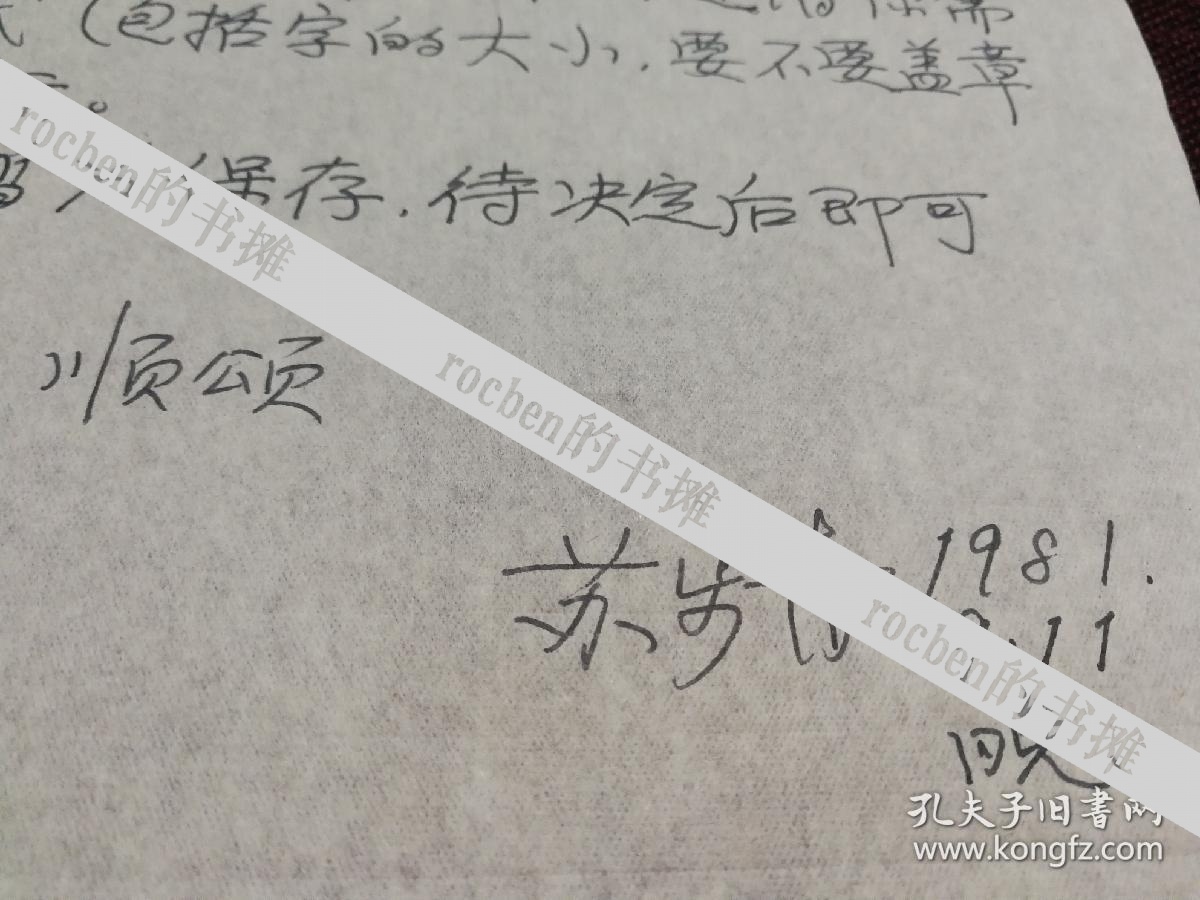 (包括字的大小,要不要盖章
保存.待决定后即可
顺颂
苏步 1981.
.11
晚
rocben的书摊
rocben的书摊
rocben的书摊
孔夫子旧書网
www.kongfz.com